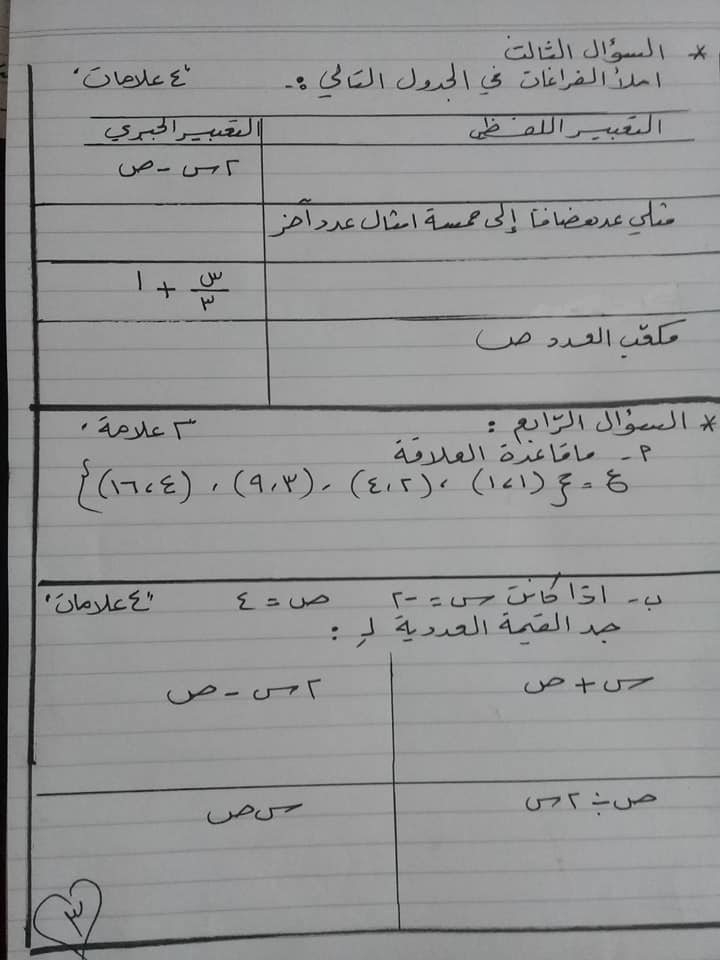 * السؤال الثالث
املأ الفراغات في الجدول التالي :- "٤ علامات"
التعبير اللفظي التعبير الجبري
٢س - ص
مثلي عدد مضافاً إلى خمسة امثال عدد آخر
س/٣ + ١
مكعب العدد ص
* السؤال الرابع : ٣ علامة
٢- ماقاعدة العلاقة
ع = {(١،١) ، (٤،٢) ، (٩،٣) ، (١٦،٤)}
ب- اذا كانت س = -٢ ص = ٤ "٤ علامات"
جد القيمة العددية لـِ :
س + ص ٢س - ص
ص ÷ ٢س س ص
٣